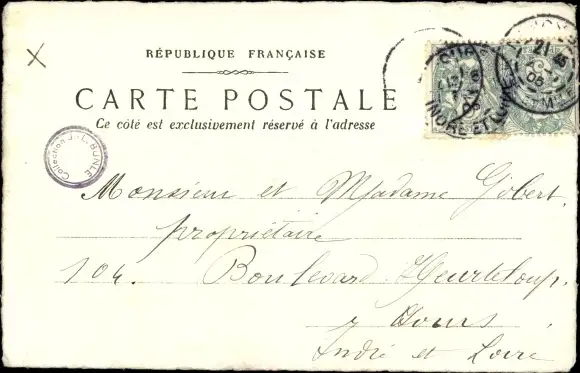 RÉPUBLIQUE FRANÇAISE
CARTE POSTALE
Ce côté est exclusivement réservé à l'adresse
Collection J-L. BUNLE
INDRE ET LOIRE
Monsieur et Madame Gibert,
propriétaire
104. Boulevard Heurteloup,
Tours
Indre et Loire